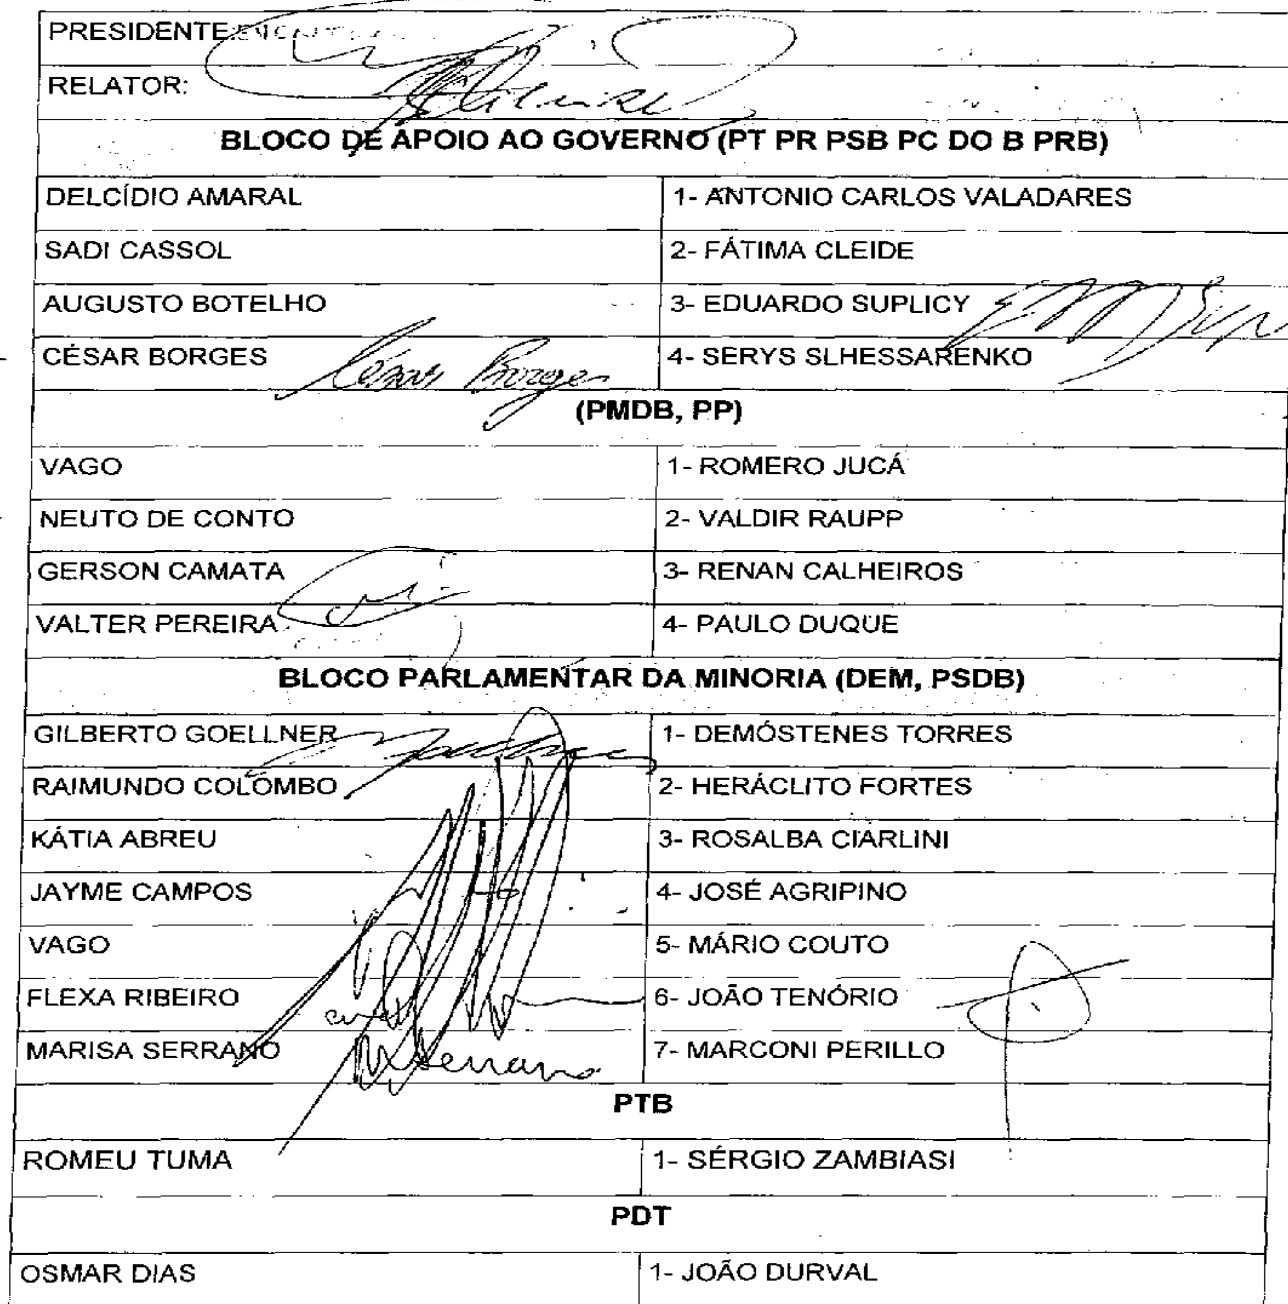 PRESIDENTE:
RELATOR:
BLOCO DE APOIO AO GOVERNO (PT PR PSB PC DO B PRB)
DELCÍDIO AMARAL 1- ANTONIO CARLOS VALADARES
SADI CASSOL 2- FÁTIMA CLEIDE
AUGUSTO BOTELHO 3- EDUARDO SUPLICY
CÉSAR BORGES César Borges 4- SERYS SLHESSARENKO
(PMDB, PP)
VAGO 1- ROMERO JUCÁ
NEUTO DE CONTO 2- VALDIR RAUPP
GERSON CAMATA 3- RENAN CALHEIROS
VALTER PEREIRA 4- PAULO DUQUE
BLOCO PARLAMENTAR DA MINORIA (DEM, PSDB)
GILBERTO GOELLNER 1- DEMÓSTENES TORRES
RAIMUNDO COLOMBO 2- HERÁCLITO FORTES
KÁTIA ABREU 3- ROSALBA CIARLINI
JAYME CAMPOS 4- JOSÉ AGRIPINO
VAGO 5- MÁRIO COUTO
FLEXA RIBEIRO 6- JOÃO TENÓRIO
MARISA SERRANO Serrano 7- MARCONI PERILLO
PTB
ROMEU TUMA 1- SÉRGIO ZAMBIASI
PDT
OSMAR DIAS 1- JOÃO DURVAL